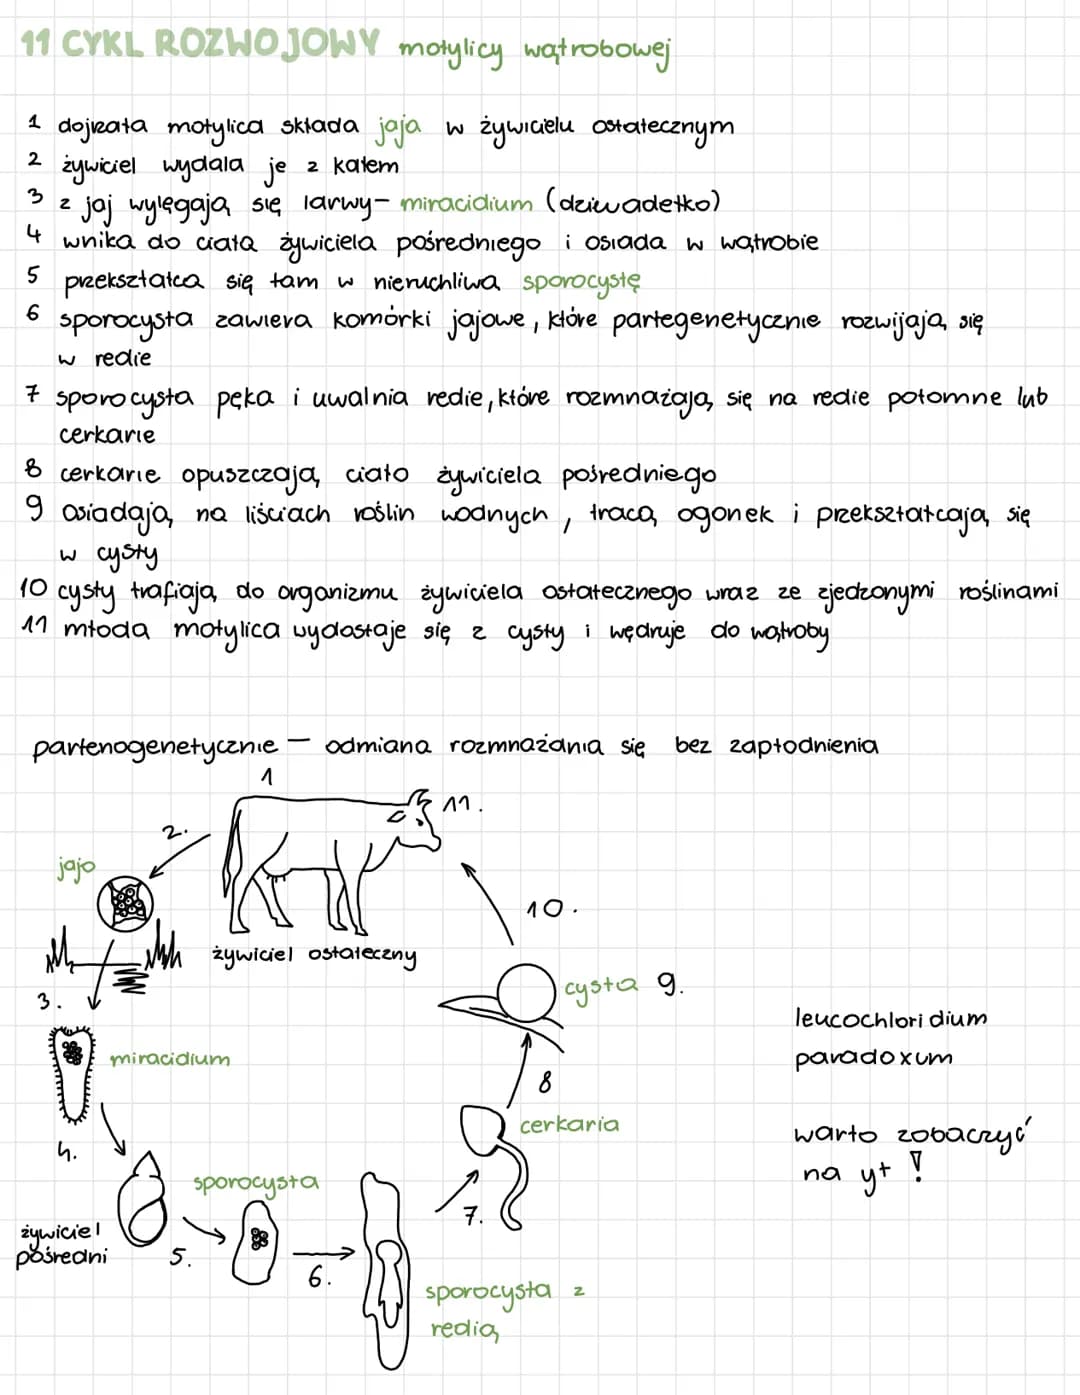 11 CYKL ROZWOJOWY motylicy wątrobowej
1 dojrzała motylica składa jaja w żywicielu ostatecznym
2 żywiciel wydala je z kałem
3 z jaj wylęgają się larwy- miracidium (dziwadełko)
4 wnika do ciała żywiciela pośredniego i osiada w wątrobie
5 przekształca się tam w nieruchliwą sporocystę
6 sporocysta zawiera komórki jajowe, które partegenetycznie rozwijają się
w redie
7 sporocysta pęka i uwalnia redie, które rozmnażają się na redie potomne lub
cerkarie
8 cerkarie opuszczają ciało żywiciela pośredniego
9 osiadają na liściach roślin wodnych, tracą ogonek i przekształcają się
w cysty
10 cysty trafiają do organizmu żywiciela ostatecznego wraz ze zjedzonymi roślinami
11 młoda motylica wydostaje się z cysty i wędruje do wątroby
partenogenetycznie - odmiana rozmnażania się bez zapłodnienia
1
11.
2.
jajo
10.
żywiciel ostateczny
cysta 9.
3.
leucochloridium
paradoxum
miracidium
8
cerkaria
warto zobaczyć
na yt !
4.
sporocysta
7.
żywiciel
pośredni
5.
6.
sporocysta z
redią